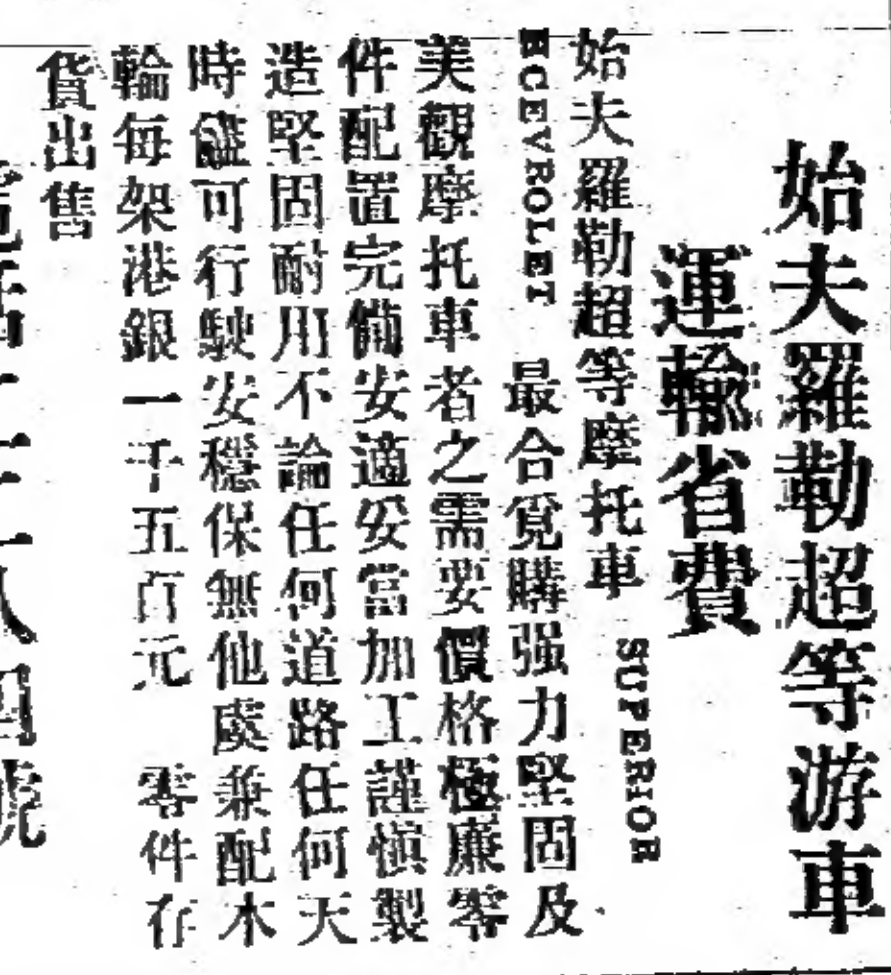 始夫羅勒超等游車
運輸省費
始夫羅勒超等摩托車 SUPERIOR
HCEVROLET 最合覓購强力堅固及
美觀摩托車者之需要價格極廉零
件配置完備安適妥當加工謹慎製
造堅固耐用不論任何道路任何天
時儘可行駛安穩保無他虞兼配木
輪每架港銀一千五百元 零件存
貨出售